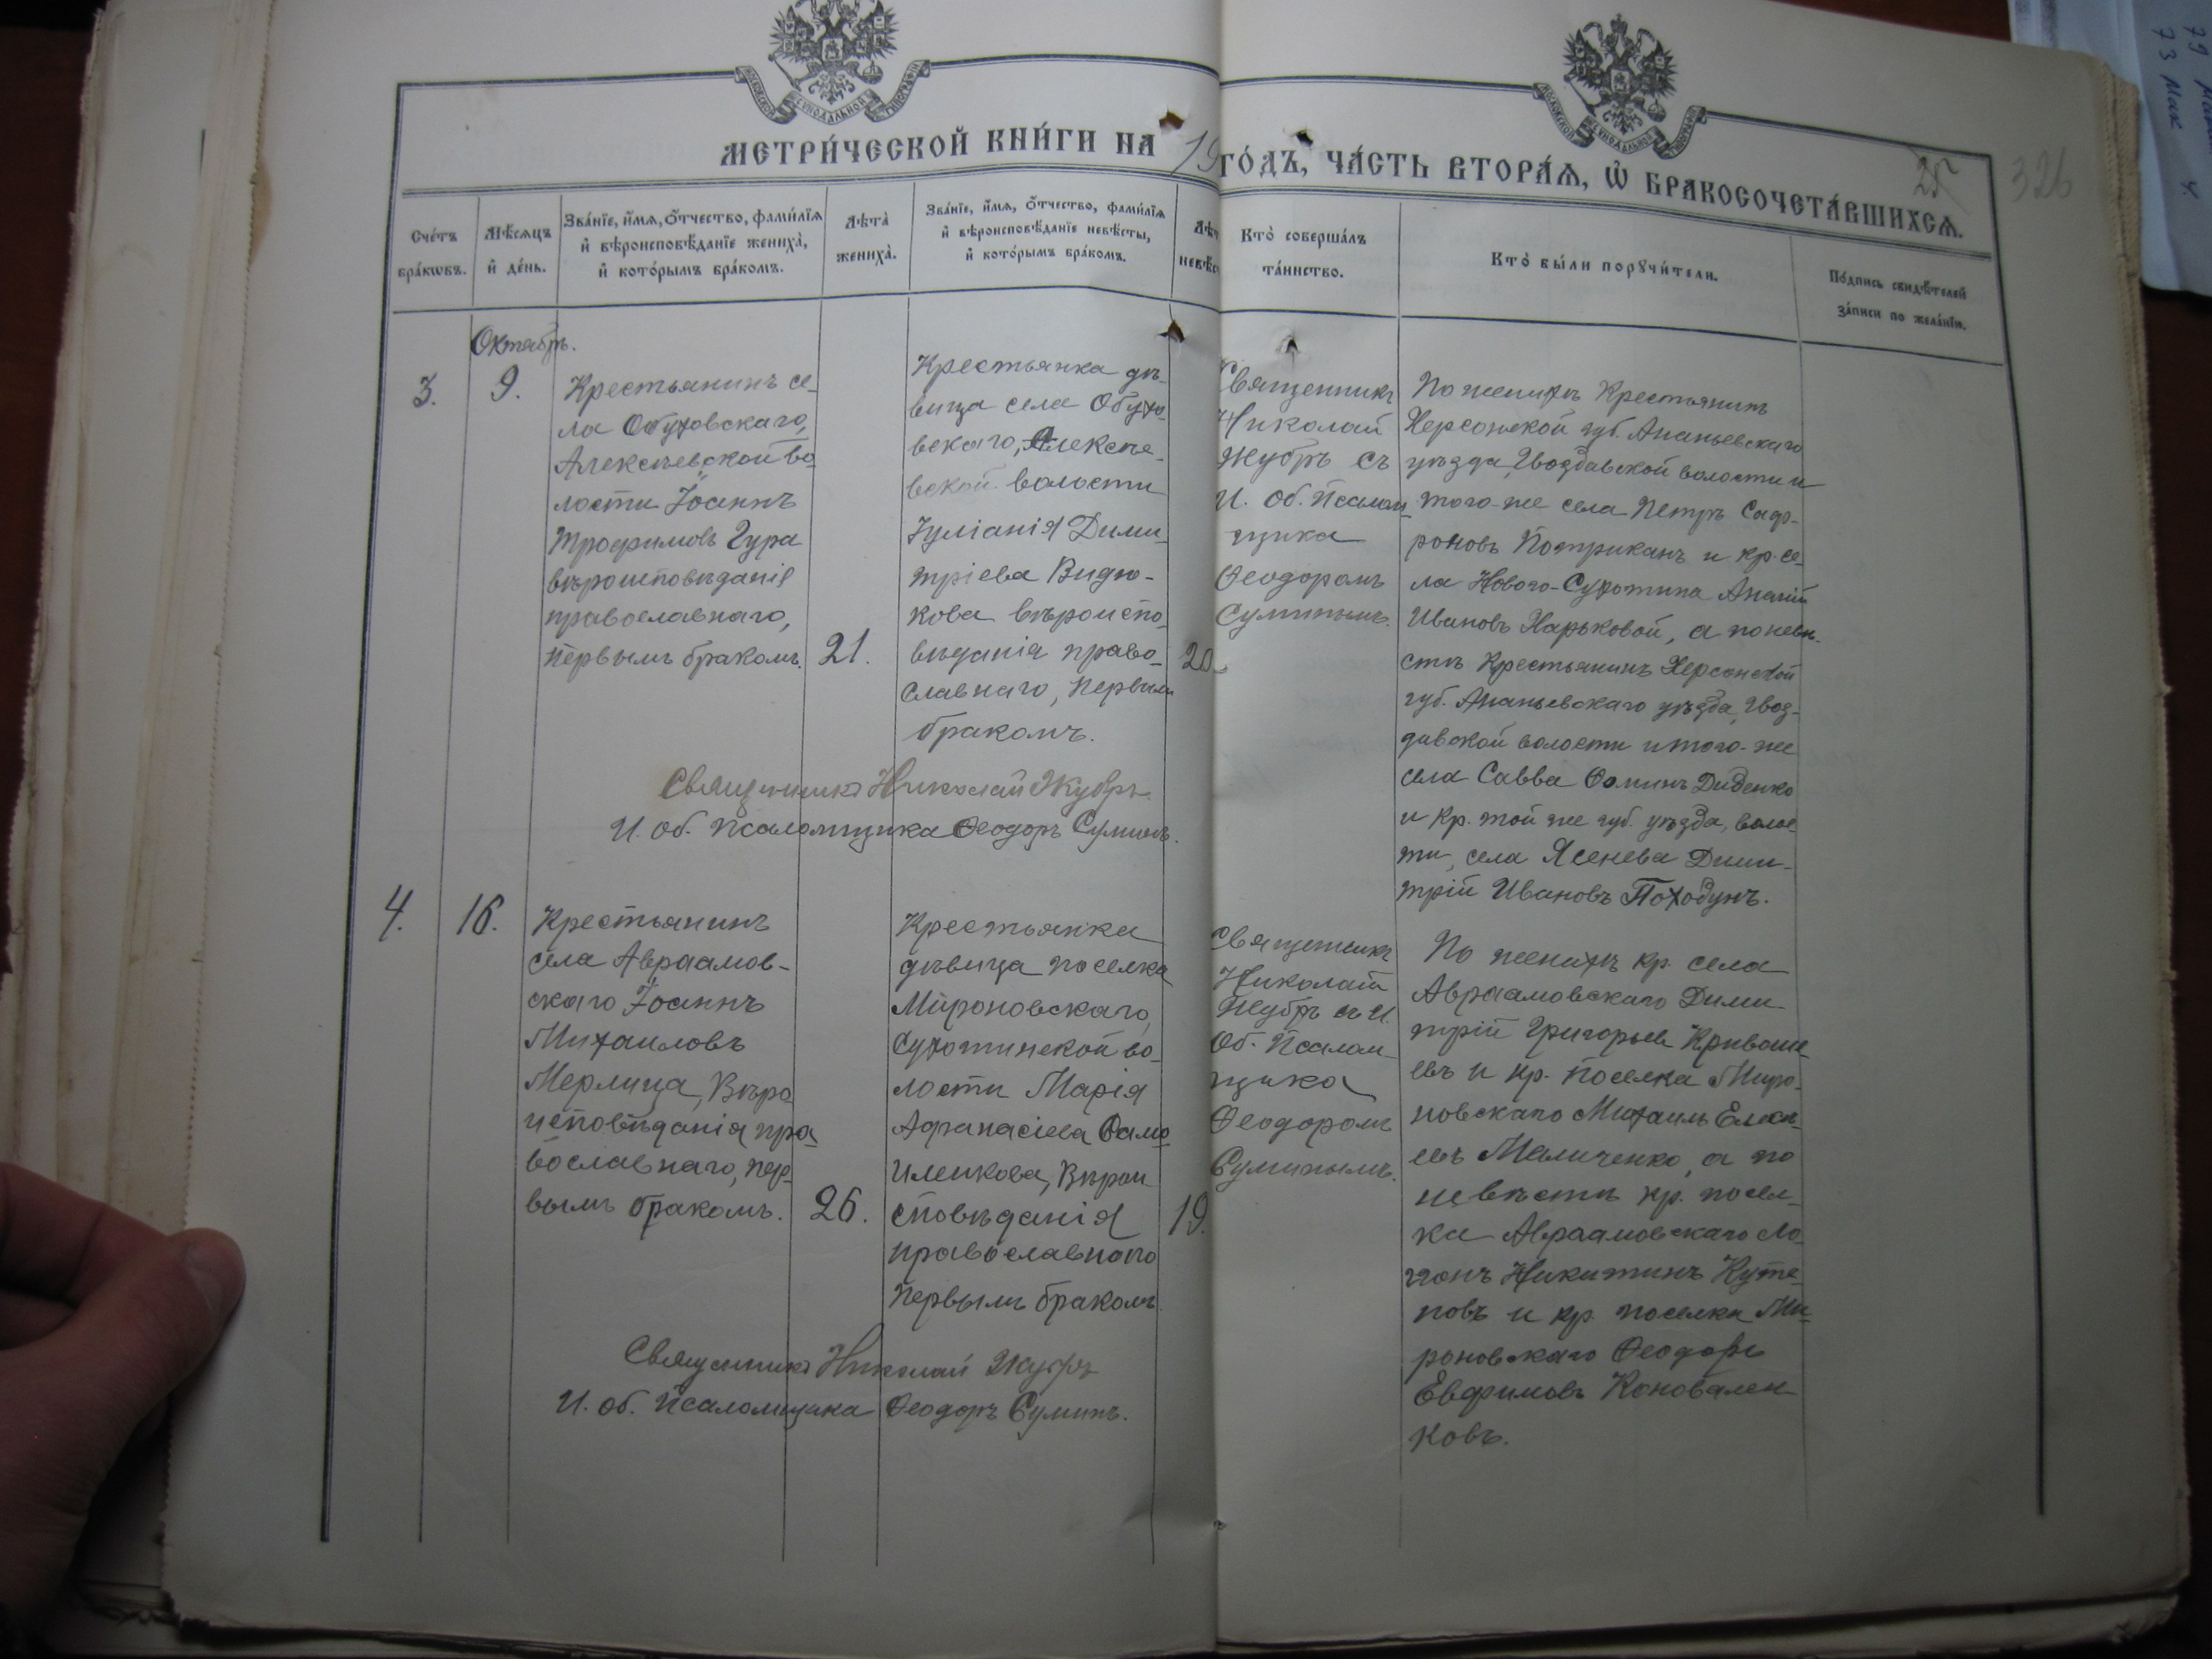 МЕТРИ́ЧЕСКОЙ КНИ́ГИ НА 19
ГО́ДЪ, ЧА́СТЬ ВТОРА́Ѧ, Ѡ҆ БРАКОСОЧЕТА́ВШИХСѦ.
25
326
Сче́тъ бра́кѡвъ.
Мѣ́сѧцъ и҆ де́нь.
Зва́нїе, и҆́мѧ, ѻ҆́тчество, фами́лїѧ
и҆ вѣроисповѣ́данїе жениха̀,
и҆ кото́рымъ бра́комъ.
Лѣта̀ жениха̀.
Зва́нїе, и҆́мѧ, ѻ҆́тчество, фами́лїѧ
и҆ вѣроисповѣ́данїе невѣ́сты,
и҆ кото́рымъ бра́комъ.
Кто̀ соверша́лъ
та́инство.
Кто̀ бы́ли порꙋчи́тели.
По́дпись свидѣ́телей
за́писи по жела́нїю.
Октябрь.
3.
9.
Крестьянинъ се-
ла Обуховскаго,
Алексѣевской во-
лости Іоаннъ
Трофимовъ Гура
вѣроисповѣданія
православнаго,
первымъ бракомъ.
21.
Крестьянка дѣ-
вица села Обухо-
вскаго, Алексѣе-
вской волости
Іуліанія Дими-
тріева Видю-
кова вѣроиспо-
вѣданія право-
славнаго, первым
бракомъ.
20
Священникъ
Николай
Жубръ съ
И. Об. Псалом-
щика
Ѳеодоромъ
Суминымъ.
По женихѣ Крестьянинъ
Херсонской губ. Ананьевскаго
уѣзда, Гвоздавской волости и
того-же села Петръ Саф-
роновъ Потриканъ и кр. се-
ла Новаго-Сухотина Ананій
Ивановъ Харьковой, а по невѣ-
стѣ Крестьянинъ Херсонской
губ. Ананьевскаго уѣзда, Гвоз-
давской волости и того-же
села Савва Ѳоминъ Диденко
и Кр. той же губ. уѣзда, волос-
ти, села Ясенева Дими-
трій Ивановъ Походунъ.
Священникъ Николай Жубръ
И. Об. Псаломщика Ѳеодоръ Суминъ.
4.
16.
Крестьянинъ
села Авраамов-
скаго Іоаннъ
Михаиловъ
Мерлица, Вѣро
исповѣданія пра
вославнаго, пер-
вымъ бракомъ.
26.
Крестьянка
дѣвица поселка
Мироновскаго,
Сухотинской во-
лости Марія
Афанасіева
Вѣрои
сповѣданія
православнаго
первымъ бракомъ
19.
Священникъ
Николай
Жубръ съ И.
Об. Псалом-
щика
Ѳеодоромъ
Суминымъ.
По женихѣ кр. села
Авраамовскаго Дими-
трій Григорьев Кривоше-
евъ и кр. поселка Миро-
новскаго Михаилъ Елисѣ-
евъ Маличенко, а по
невѣстѣ кр. посел-
ка Авраамовскаго Ло-
ггонъ Никитинъ Куте-
повъ и кр. поселка Ми-
роновскаго Ѳеодоръ
Евфимовъ Коновален-
ковъ.
Священникъ Николай Жубръ
И. об. Псаломщика Ѳеодоръ Суминъ.